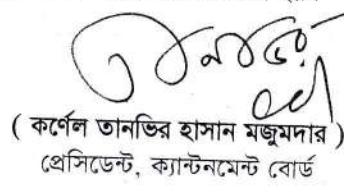 ( কর্ণেল তানভির হাসান মজুমদার )
প্রেসিডেন্ট, ক্যান্টনমেন্ট বোর্ড